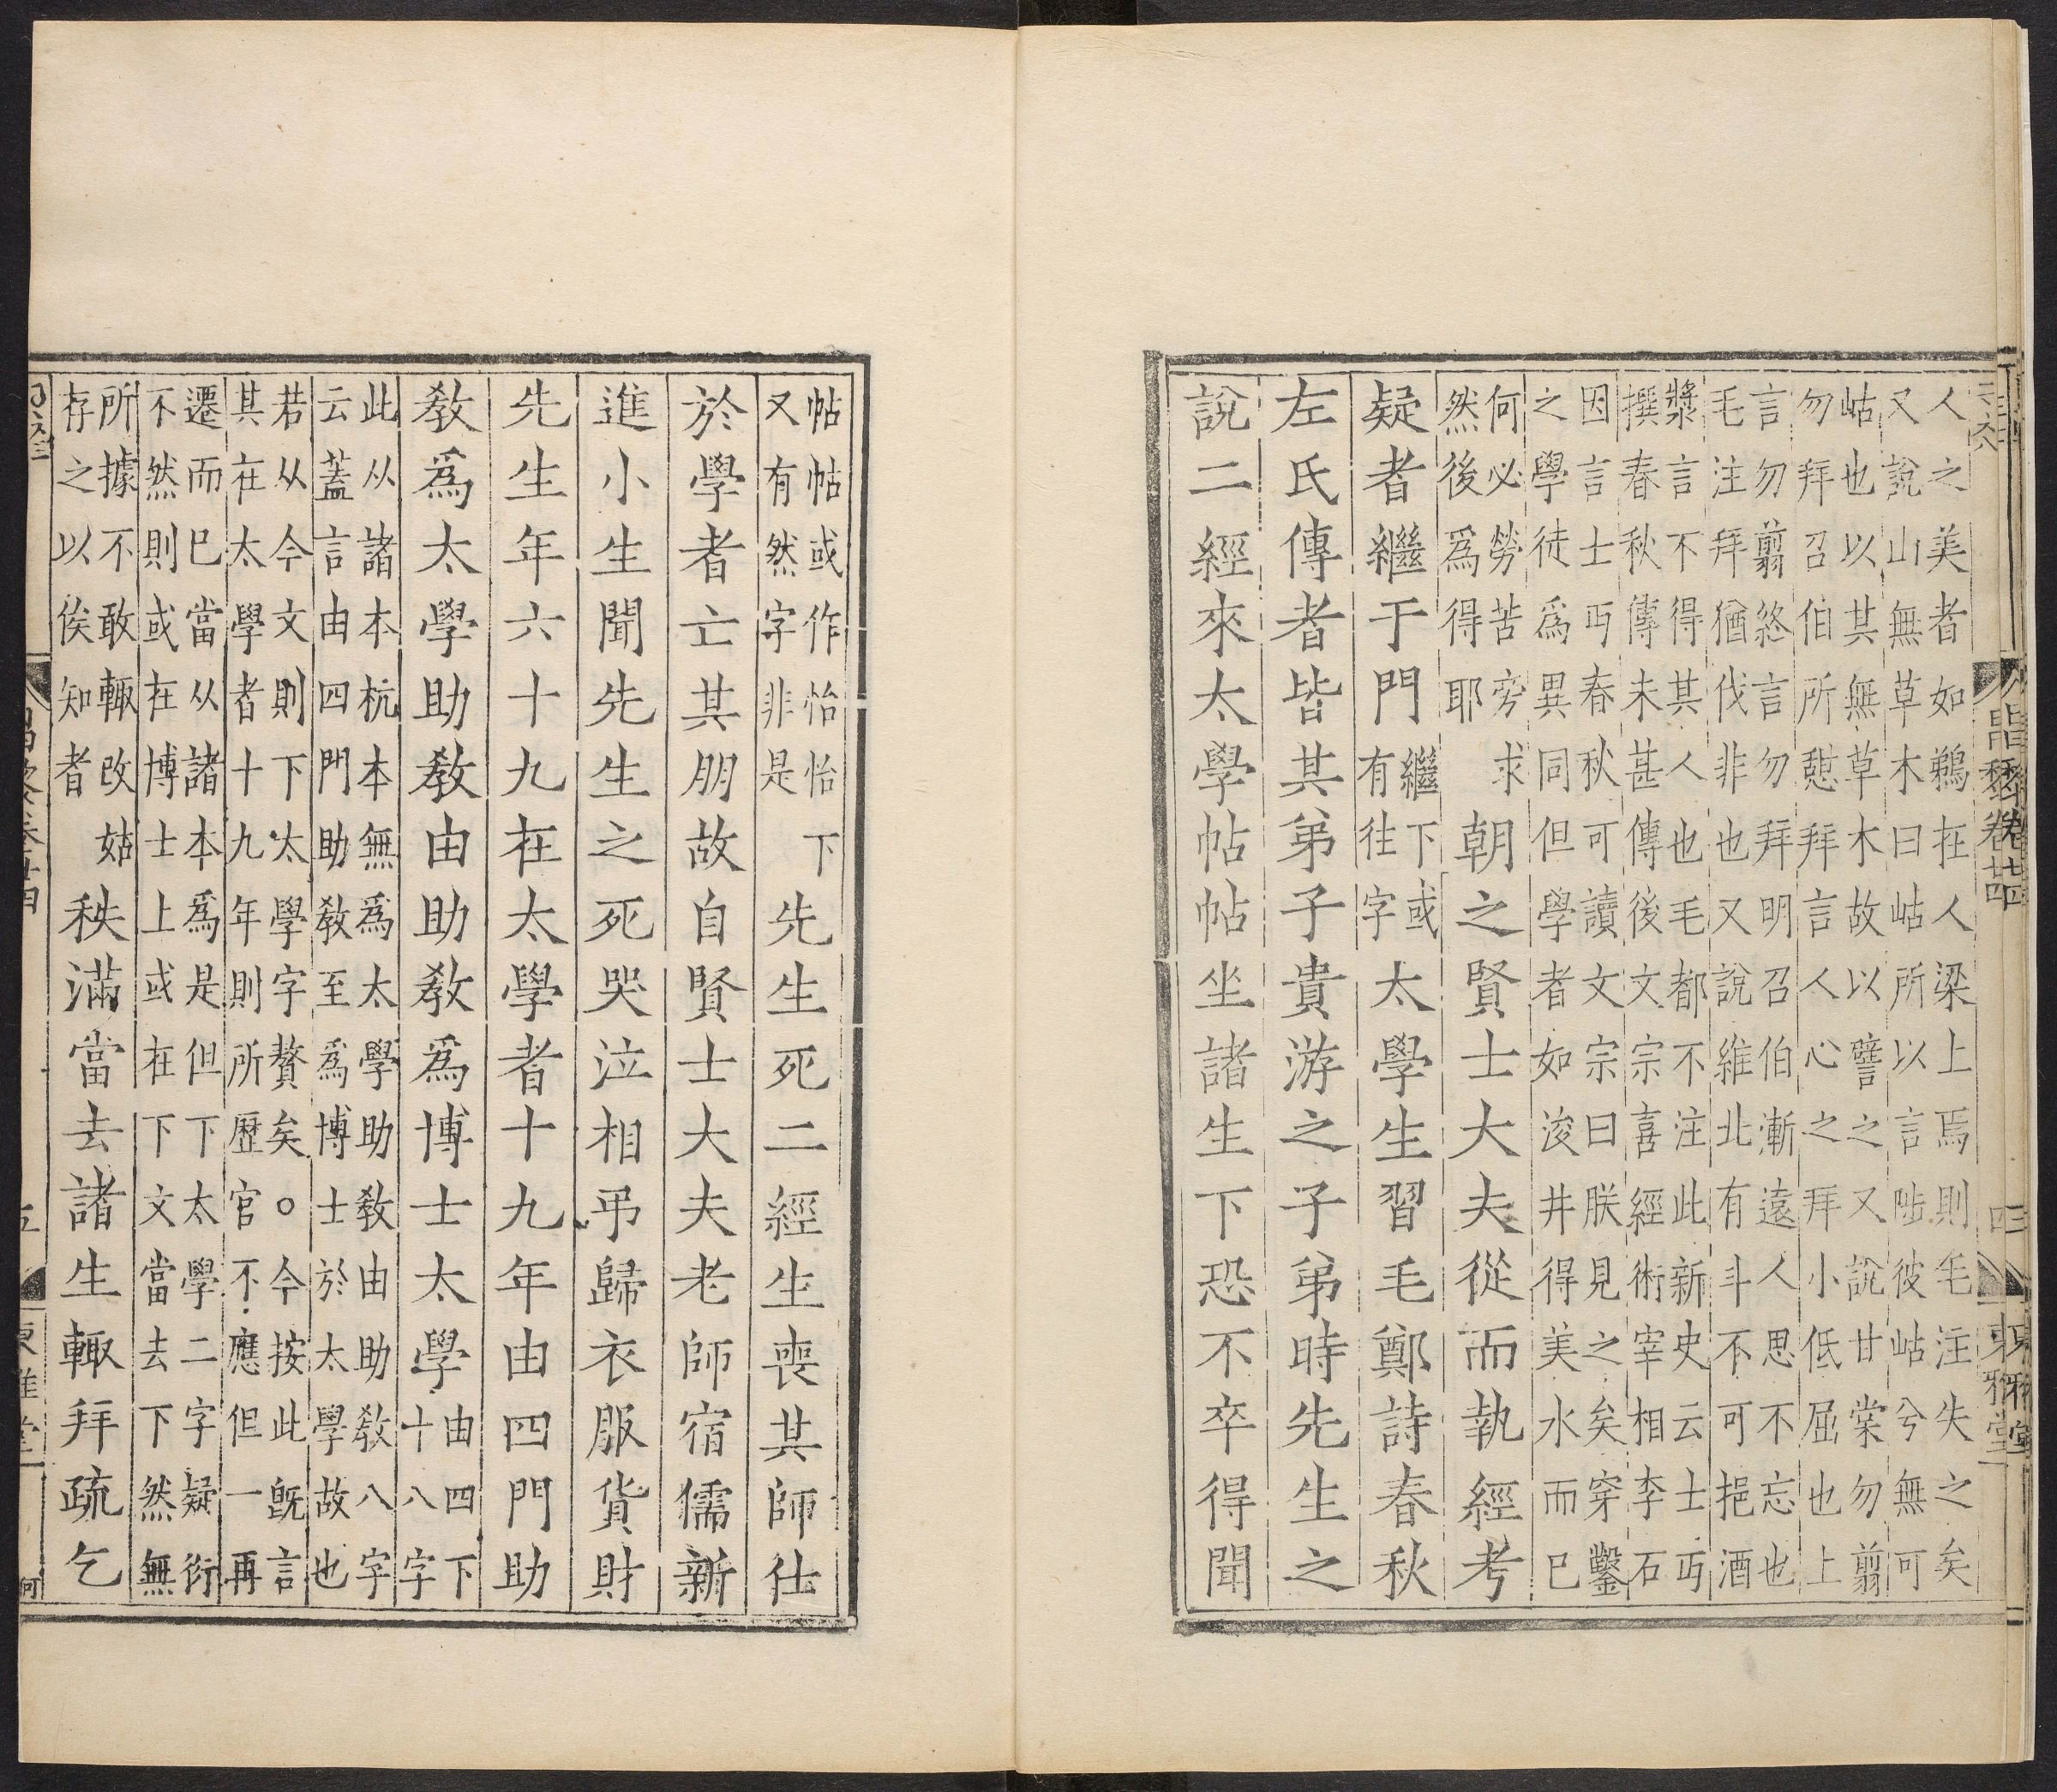 人之美者如鵜在人梁上焉則毛注失之矣
又說山無草木曰岵所以言陟彼岵兮無可
岵也以其無草木故以譬之又說甘棠勿翦
勿拜召伯所憩拜言人心之拜小低屈也上
言勿翦終言勿拜明召伯漸遠人思不忘也
毛注拜猶伐非也又說維北有斗不可挹酒
漿言不得其人也毛都不注此新史云士丐
撰春秋傳未甚傳後文宗喜經術宰相李石
因言士丐春秋可讀文宗曰朕見之矣穿鑿
之學徒為異同但學者如浚井得美水而已
何必勞苦旁求
然後爲得耶
朝之賢士大夫從而執經考
疑者繼于門
繼下或
有往字
太學生習毛鄭詩春秋
左氏傳者皆其弟子貴游之子弟時先生之
說二經來太學帖帖坐諸生下恐不卒得聞
昌黎卷廿四
四
東雅堂
帖帖或作怡怡下
又有然字非是
先生死二經生喪其師仕
於學者亡其朋故自賢士大夫老師宿儒新
進小生聞先生之死哭泣相弔歸衣服貨財
先生年六十九在太學者十九年由四門助
教爲太學助教由助教爲博士太學
由四下
十八字
此从諸本杭本無爲太學助教由助教八字
云蓋言由四門助教至爲博士於太學故也
若从今文則下太學字贅矣○今按此旣言
其在太學者十九年則所歷官不應但一再
遷而已當从諸本爲是但下太學二字疑衍
不然則或在博士上或在下文當去下然無
所據不敢輙改姑
存之以俟知者
秩滿當去諸生輙拜疏乞